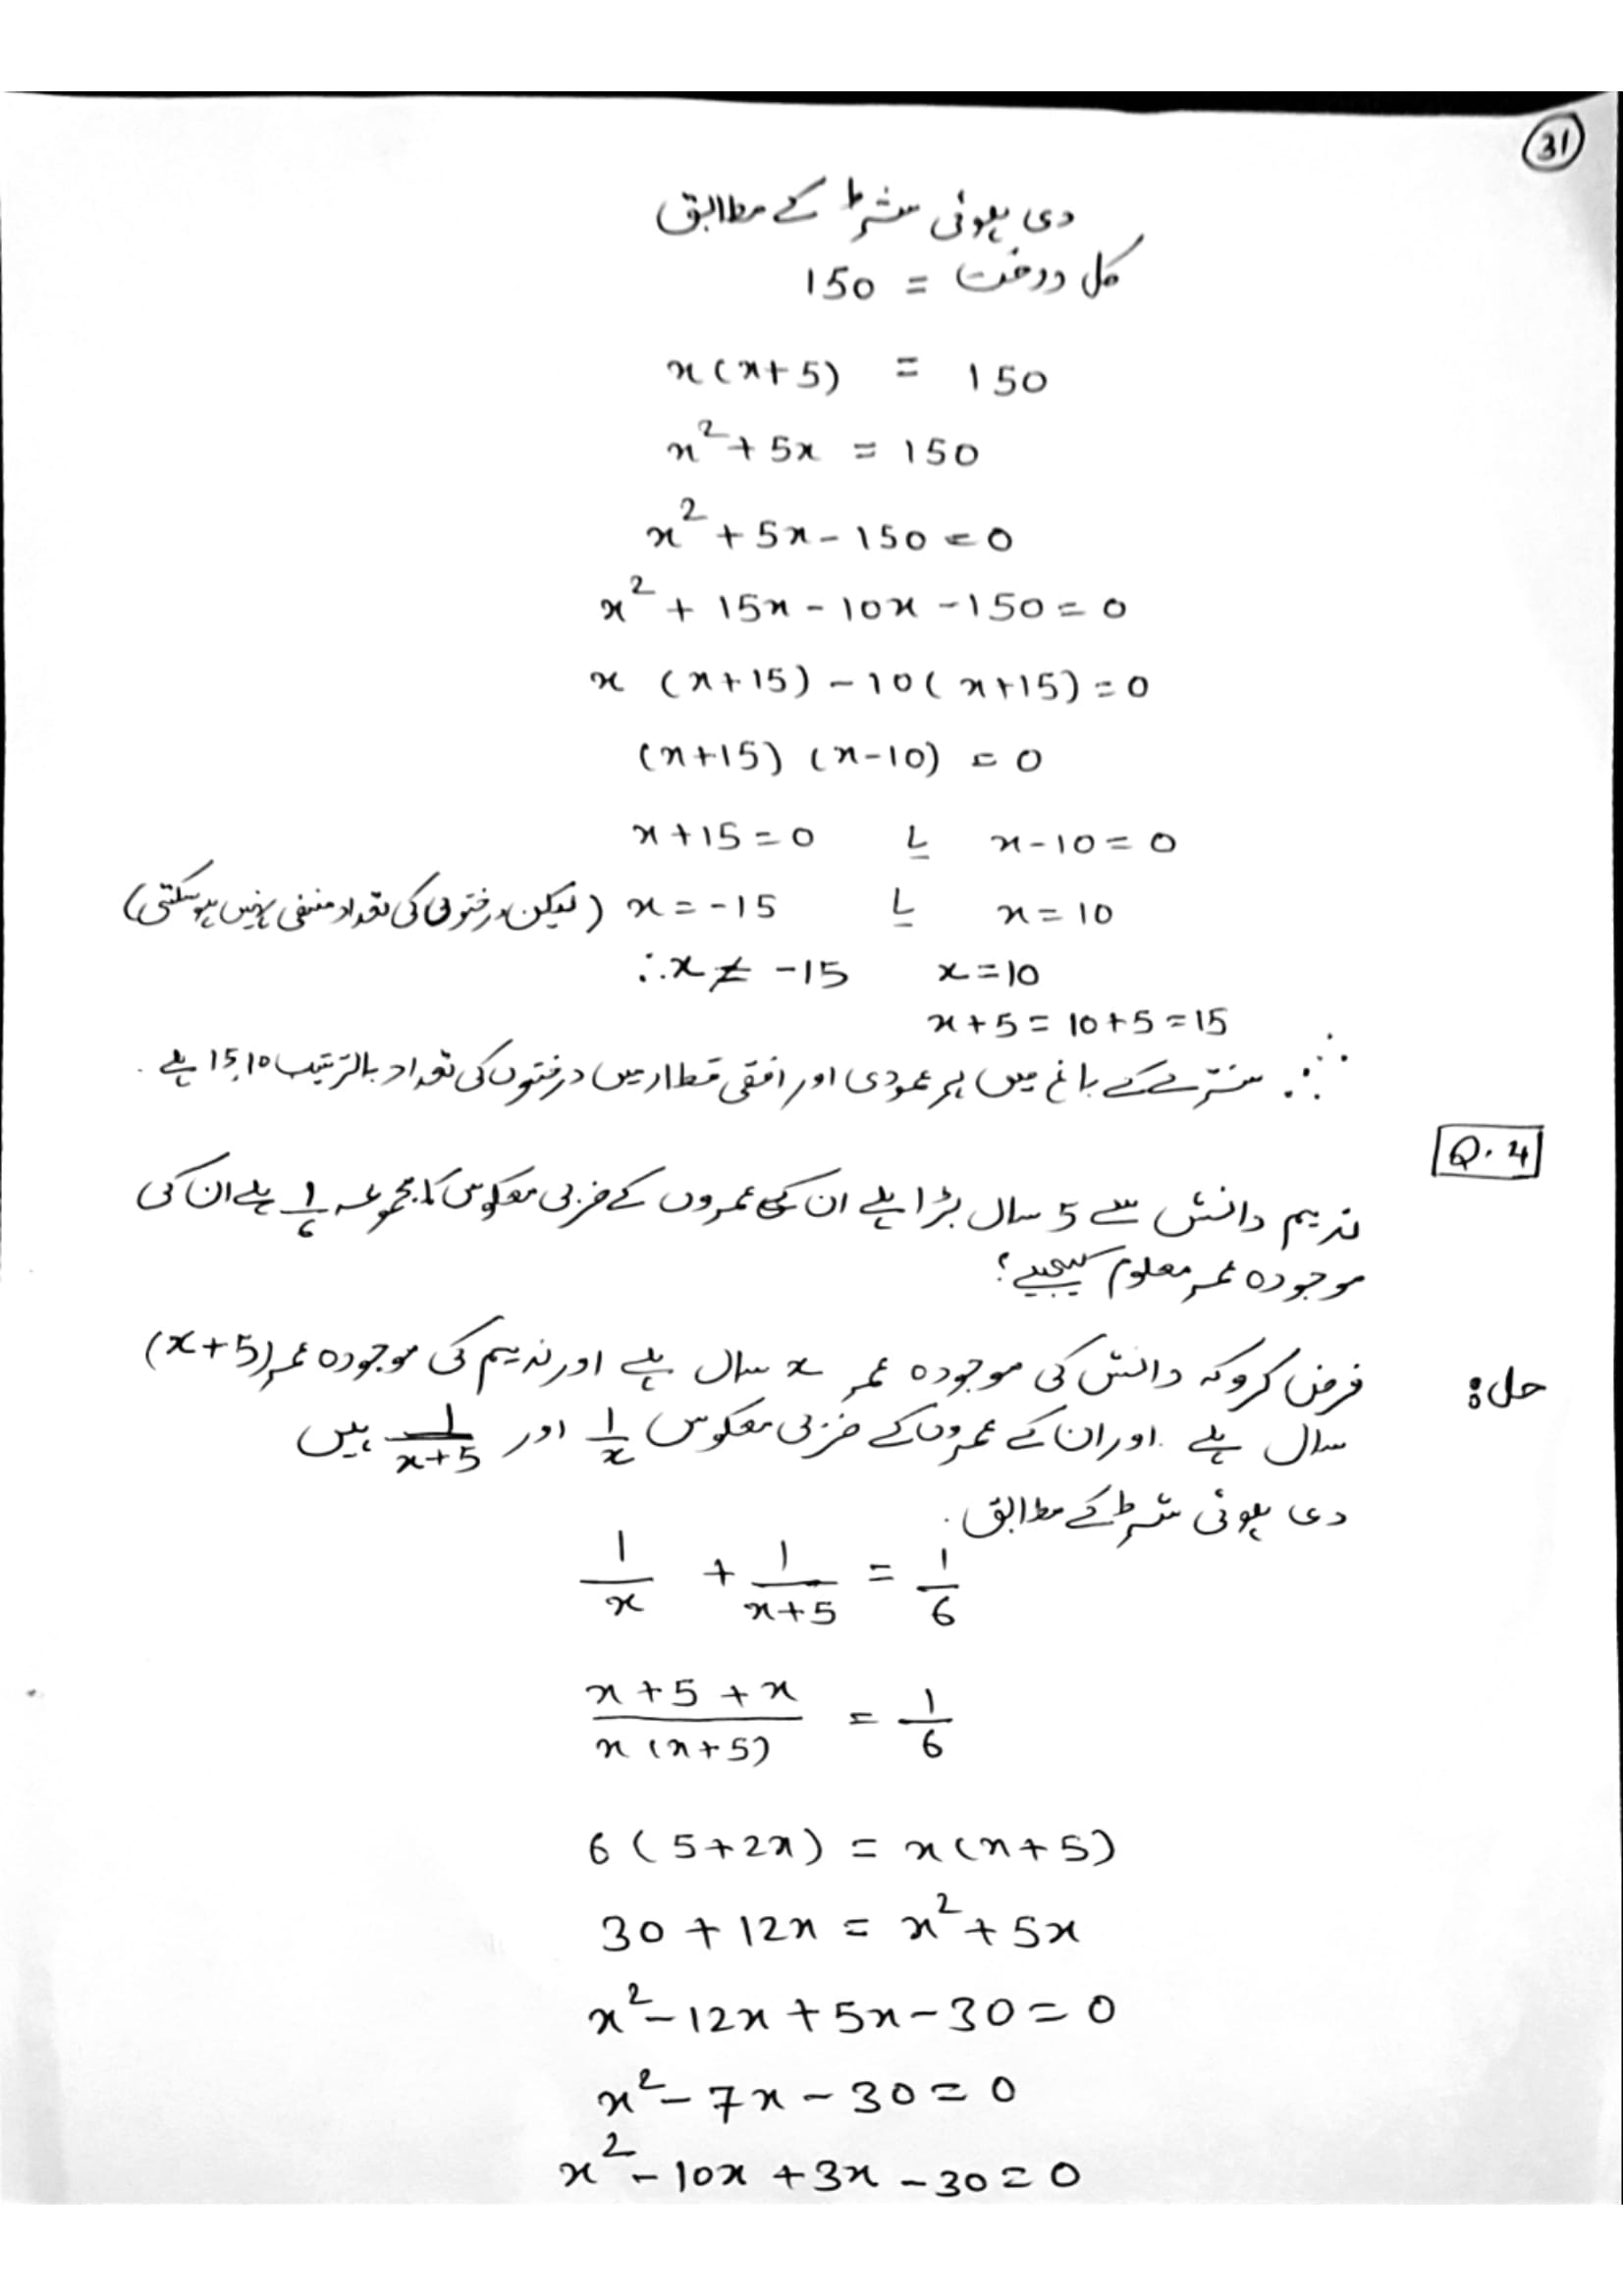 31
دی ہوئی شرط کے مطابق
کل درخت = 150
x(x+5) = 150
x² + 5x = 150
x² + 5x - 150 = 0
x² + 15x - 10x - 150 = 0
x (x+15) - 10(x+15) = 0
(x+15) (x-10) = 0
x+15=0 یا x-10=0
(لیکن درختوں کی تعداد منفی نہیں ہو سکتی) x=-15 یا x=10
∴x ≠ -15 x=10
x+5 = 10+5 = 15
∴ سنترے کے باغ میں ہر عمودی اور افقی قطار میں درختوں کی تعداد بالترتیب 10، 15 ہے۔
Q.4
ندیم دانش سے 5 سال بڑا ہے ان کی عمروں کے ضربی معکوس کا مجموعہ 1/6 ہے ان کی
موجودہ عمر معلوم کیجیے؟
حل: فرض کرو کہ دانش کی موجودہ عمر x سال ہے اور ندیم کی موجودہ عمر (x+5)
سال ہے۔ اور ان کے عمروں کے ضربی معکوس 1/x اور 1/(x+5) ہیں
دی ہوئی شرط کے مطابق۔
1/x + 1/(x+5) = 1/6
(x+5+x)/(x(x+5)) = 1/6
6(5+2x) = x(x+5)
30 + 12x = x² + 5x
x² - 12x + 5x - 30 = 0
x² - 7x - 30 = 0
x² - 10x + 3x - 30 = 0